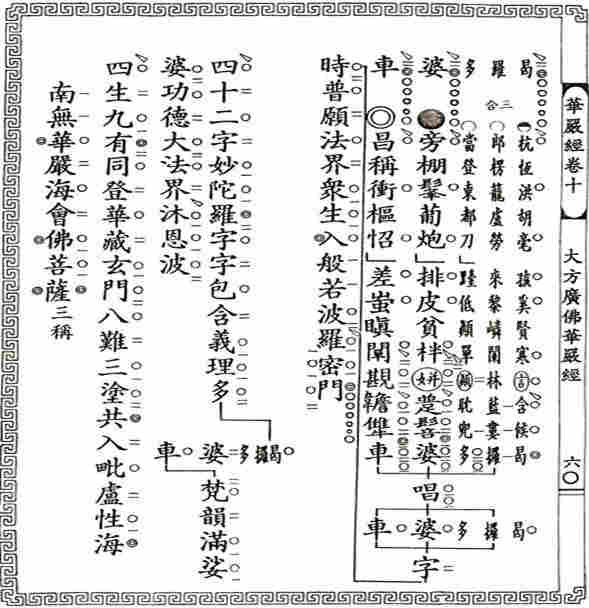 華嚴經卷十
大方廣佛華嚴經
六〇
曷 杭恆洪胡毫 孩奚賢寒 含候曷 曷
羅 三合 郎楞籠盧勞 來黎嶙闌林藍婁攞 攞
多 當登東都刀 低顛單 耽兜多 多
婆 旁棚鬔蔔炮 排皮貧柈 婆 唱 婆 字
車 昌稱衝樞怊 差蚩瞋闡覘韂犨車 車
時普願法界衆生入般若波羅密門
四十二字妙陀羅字字包含義理多
曷攞多婆車 梵韻滿娑
婆功德大法界沐恩波
四生九有同登華藏玄門八難三塗共入毗盧性海
南無華嚴海會佛菩薩 三稱